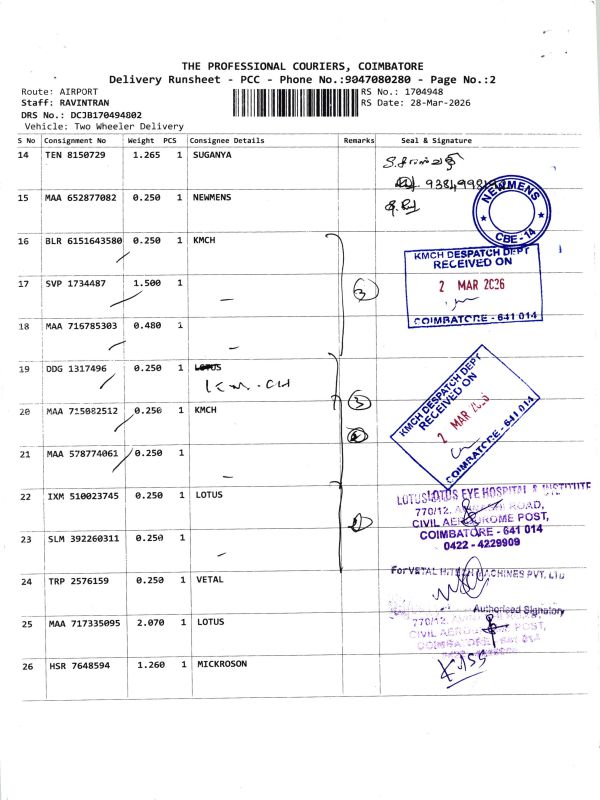 THE PROFESSIONAL COURIERS, COIMBATORE
Delivery Runsheet - PCC - Phone No.:9047080280 - Page No.:2
Route: AIRPORT
RS No.: 1704948
Staff: RAVINTRAN
RS Date: 28-Mar-2026
DRS No.: DCJB170494802
Vehicle: Two Wheeler Delivery
S No Consignment No Weight PCS Consignee Details Remarks Seal & Signature
14 TEN 8150729 1.265 1 SUGANYA
15 MAA 652877082 0.250 1 NEWMENS
NEWMENS
CBE - 14
16 BLR 6151643580 0.250 1 KMCH
KMCH DESPATCH DEPT
RECEIVED ON
17 SVP 1734487 1.500 1 — 3
2 MAR
COIMBATORE - 641 014
18 MAA 716785303 0.480 1 —
19 DDG 1317496 0.250 1 LOTUS
KM-CH
KMCH DESPATCH DEPT
RECEIVED ON
2 MAR
COIMBATORE - 641 014
20 MAA 715082512 0.250 1 KMCH 3
21 MAA 578774061 0.250 1 —
22 IXM 510023745 0.250 1 LOTUS
LOTUS EYE HOSPITAL & INSTITUTE
770/12, ROAD,
CIVIL AERODROME POST,
COIMBATORE - 641 014
0422 - 4229909
23 SLM 392260311 0.250 1 —
24 TRP 2576159 0.250 1 VETAL
For VETAL MACHINES PVT. LTD
Authorised Signatory
25 MAA 717335095 2.070 1 LOTUS
770/12,
CIVIL POST,
26 HSR 7648594 1.260 1 MICKROSON